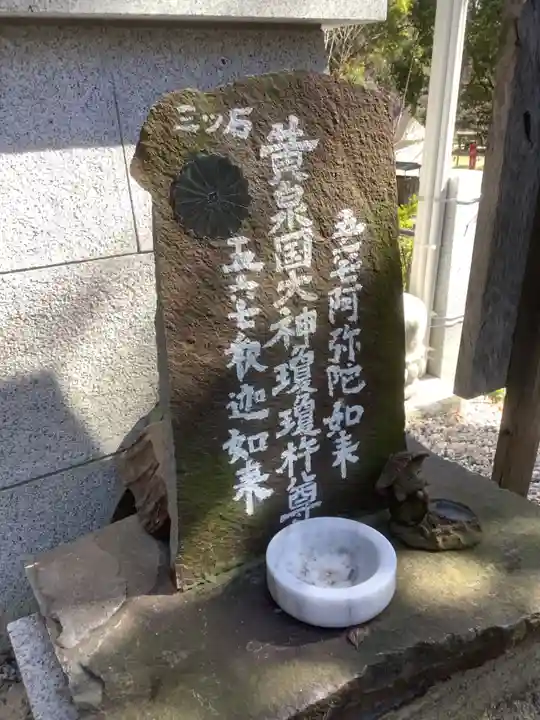 三ッ石
阿弥陀如来
黄泉国大神瓊瓊杵尊
五十七釈迦如来